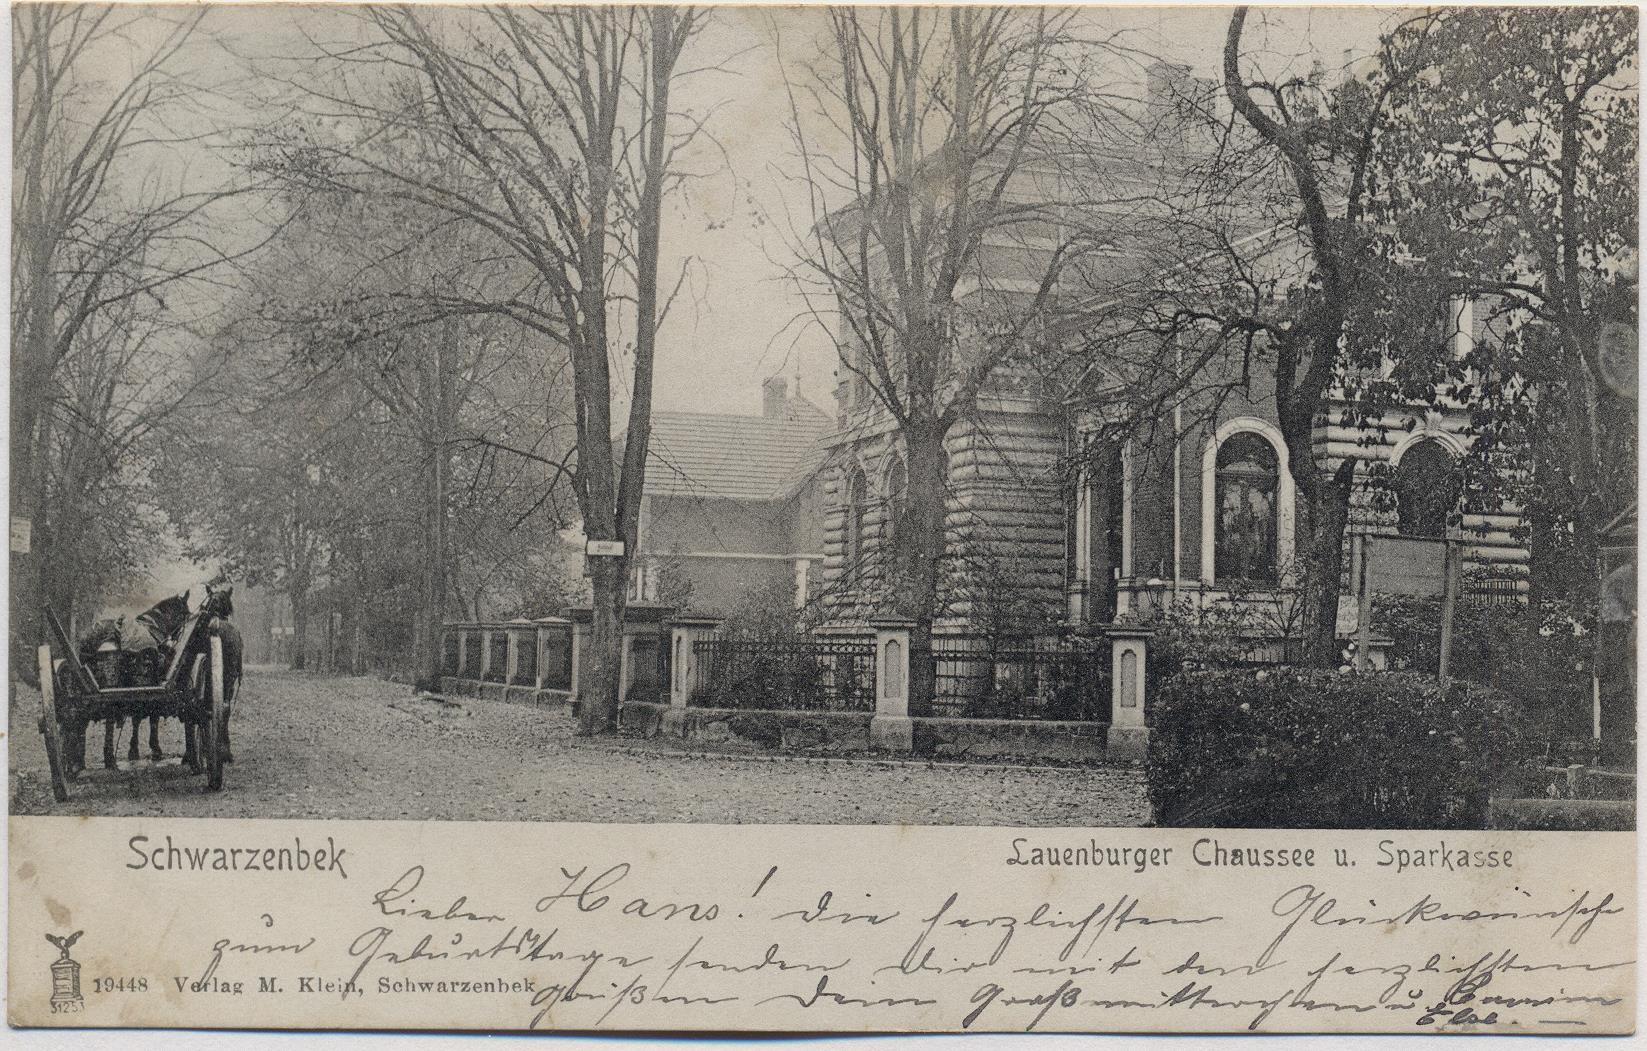 Schwarzenbek
Lauenburger Chaussee u. Sparkasse
Lieber Hans! Die herzlichsten Glückwünsche
zum Geburtstage senden Dir mit den herzlichsten
Grüßen Dein Großmütterchen u.
Else.
19448 Verlag M. Klein, Schwarzenbek
31253